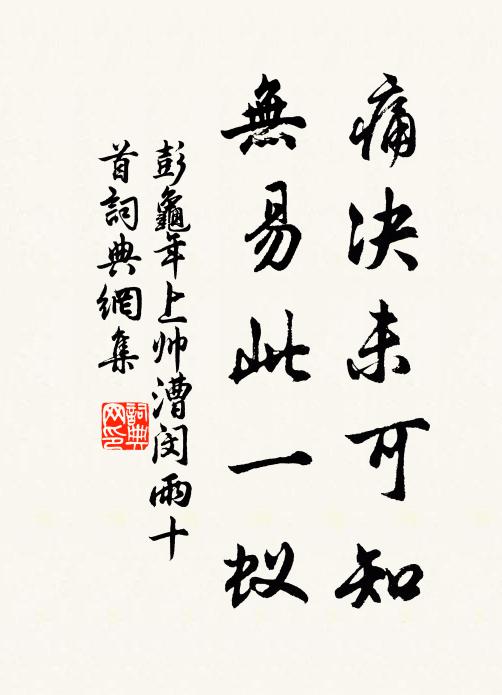 痛决未可知
無易此一蚁
彭龜年上帅漕闵雨十
首詞典網集
詞典网印